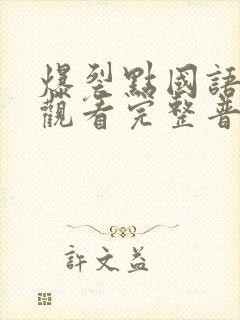 爆裂點國語
觀看完整普
許文益